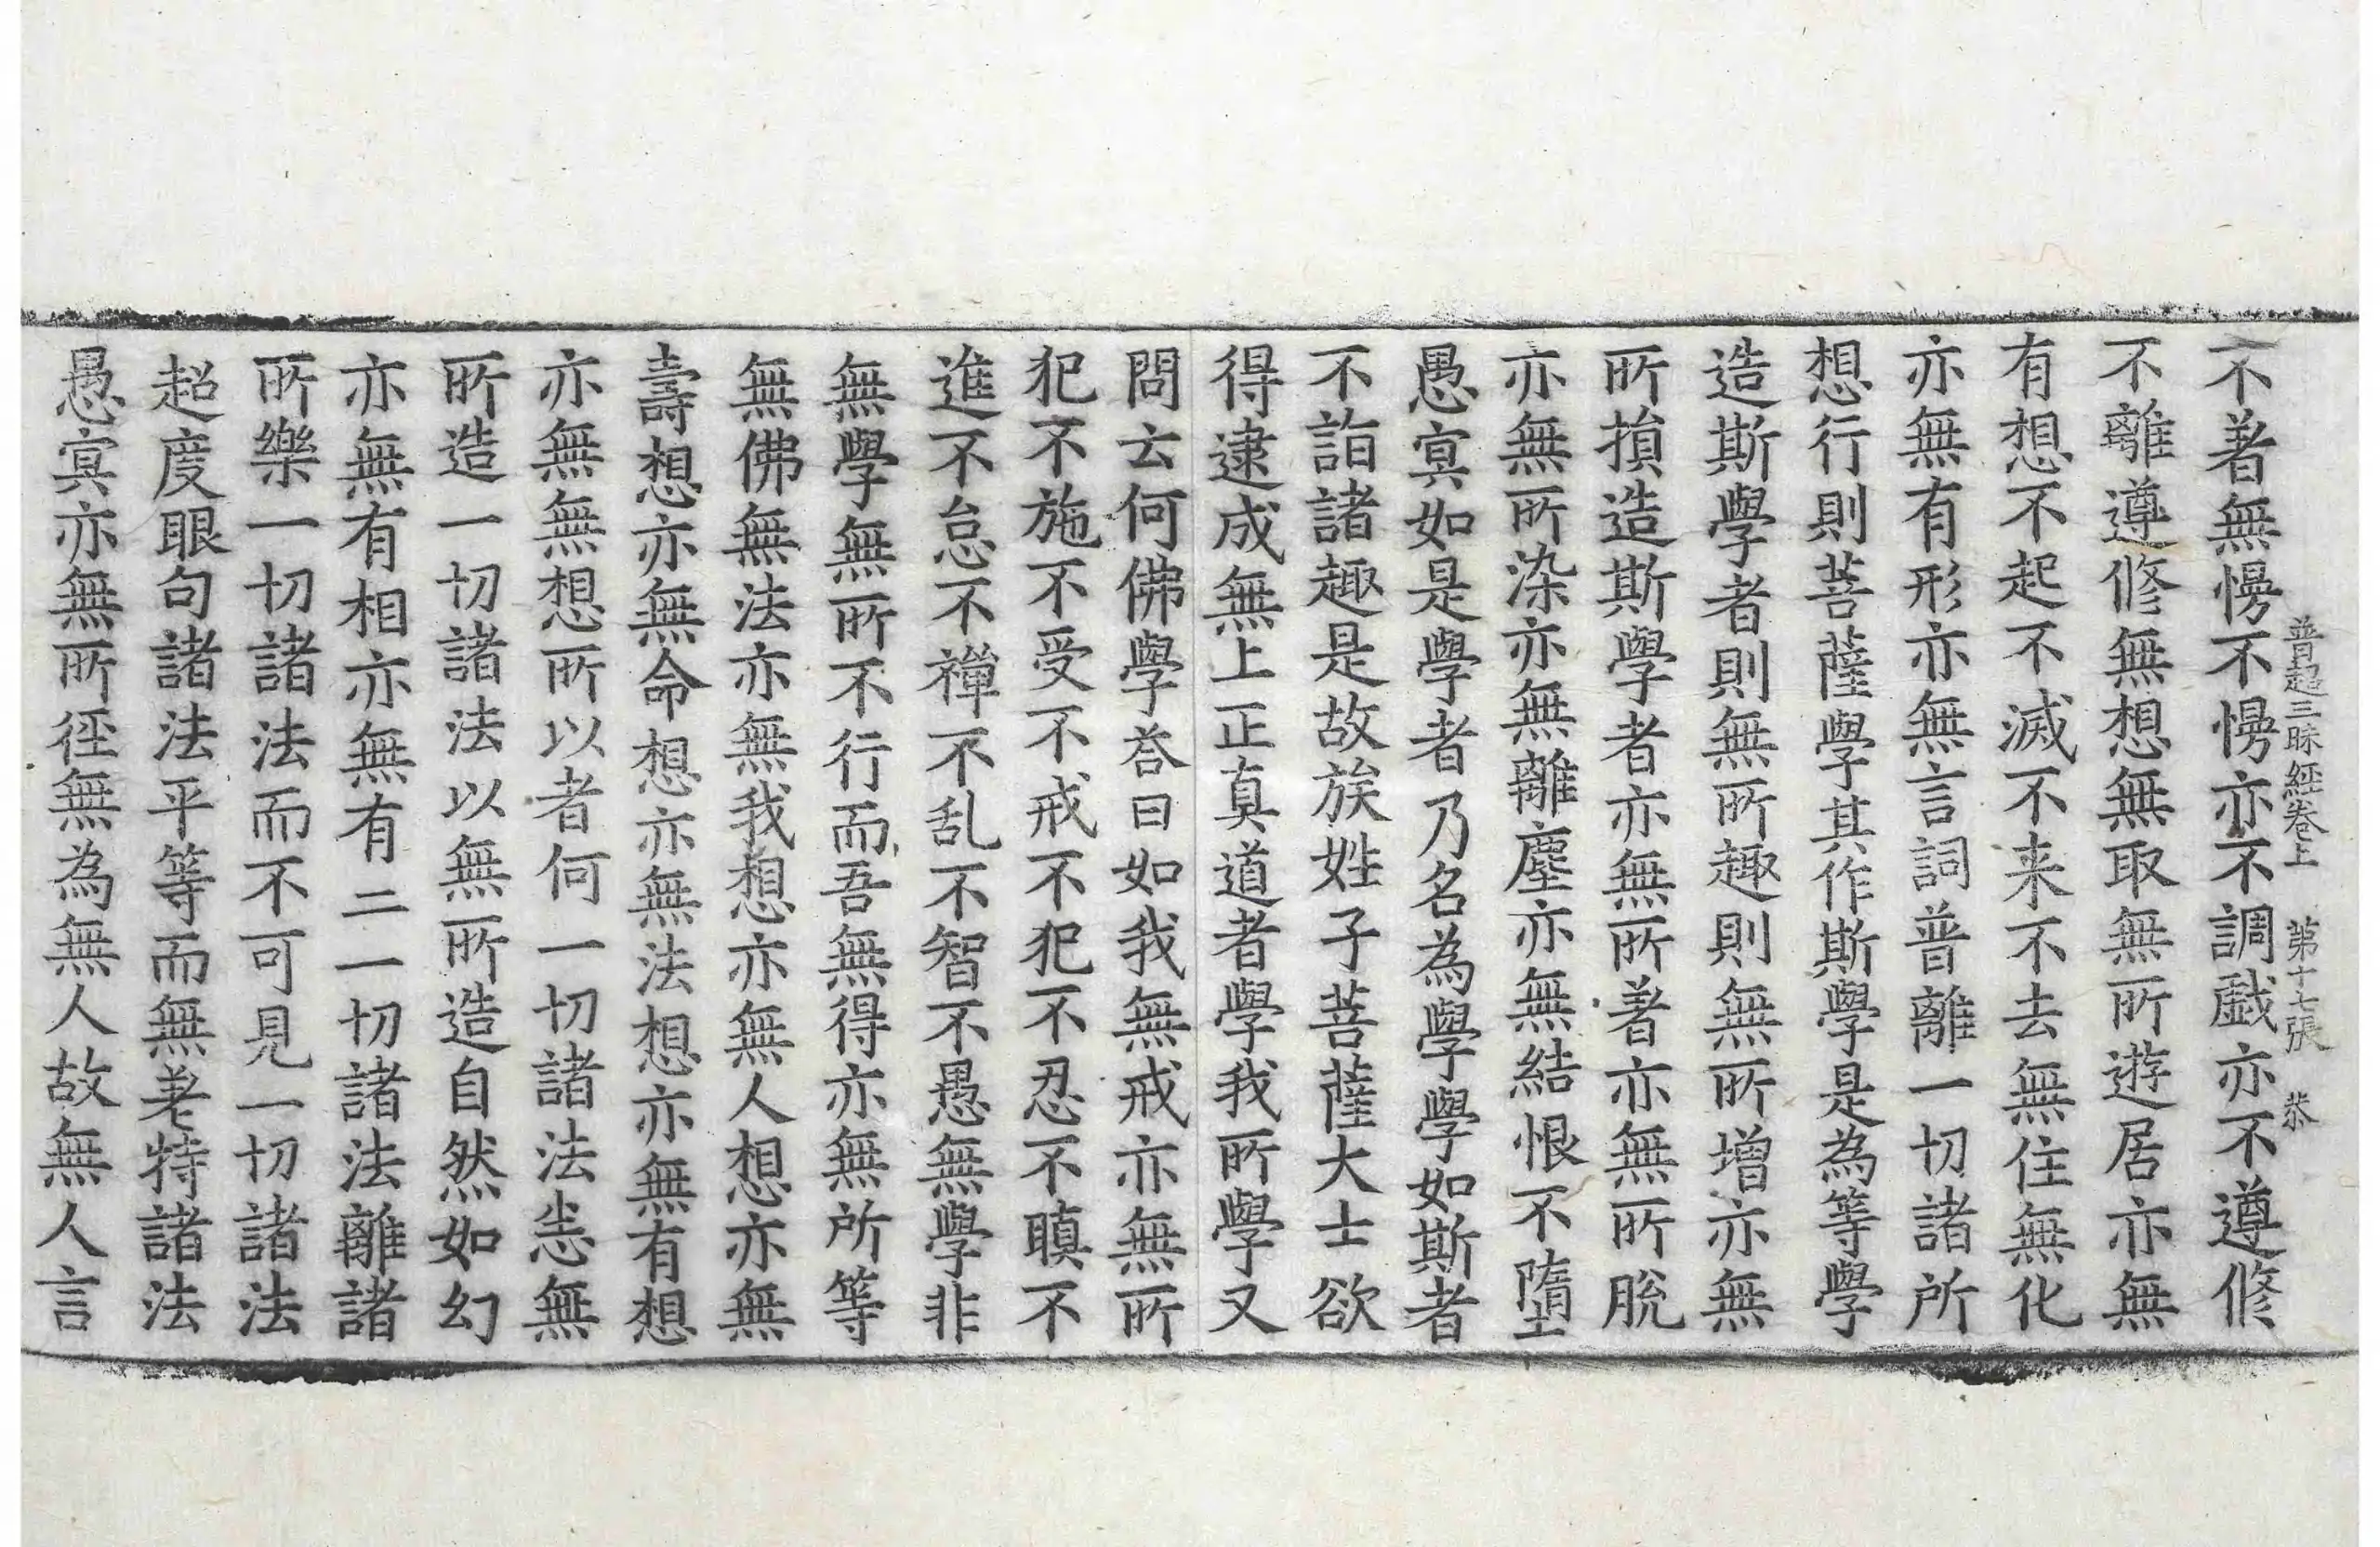 普超三昧經卷上　第十七張　恭
不著無慢不慢亦不調戲亦不遵修
不離遵修無想無取無所遊居亦無
有想不起不滅不来不去無住無化
亦無有形亦無言詞普離一切諸所
想行則菩薩學其作斯學是為等學
造斯學者則無所趣則無所增亦無
所損造斯學者亦無所著亦無所脫
亦無所染亦無離塵亦無結恨不墮
愚冥如是學者乃名為學學如斯者
不詣諸趣是故族姓子菩薩大士欲
得逮成無上正真道者學我所學又
問云何佛學荅曰如我無戒亦無所
犯不施不受不戒不犯不忍不瞋不
進不怠不禪不乱不智不愚無學非
無學無所不行而吾無得亦無所等
無佛無法亦無我想亦無人想亦無
壽想亦無命想亦無法想亦無有想
亦無無想所以者何一切諸法恙無
所造一切諸法以無所造自然如幻
亦無有相亦無有二一切諸法離諸
所樂一切諸法而不可見一切諸法
超度眼句諸法平等而無差特諸法
愚冥亦無所徑無為無人故無人言